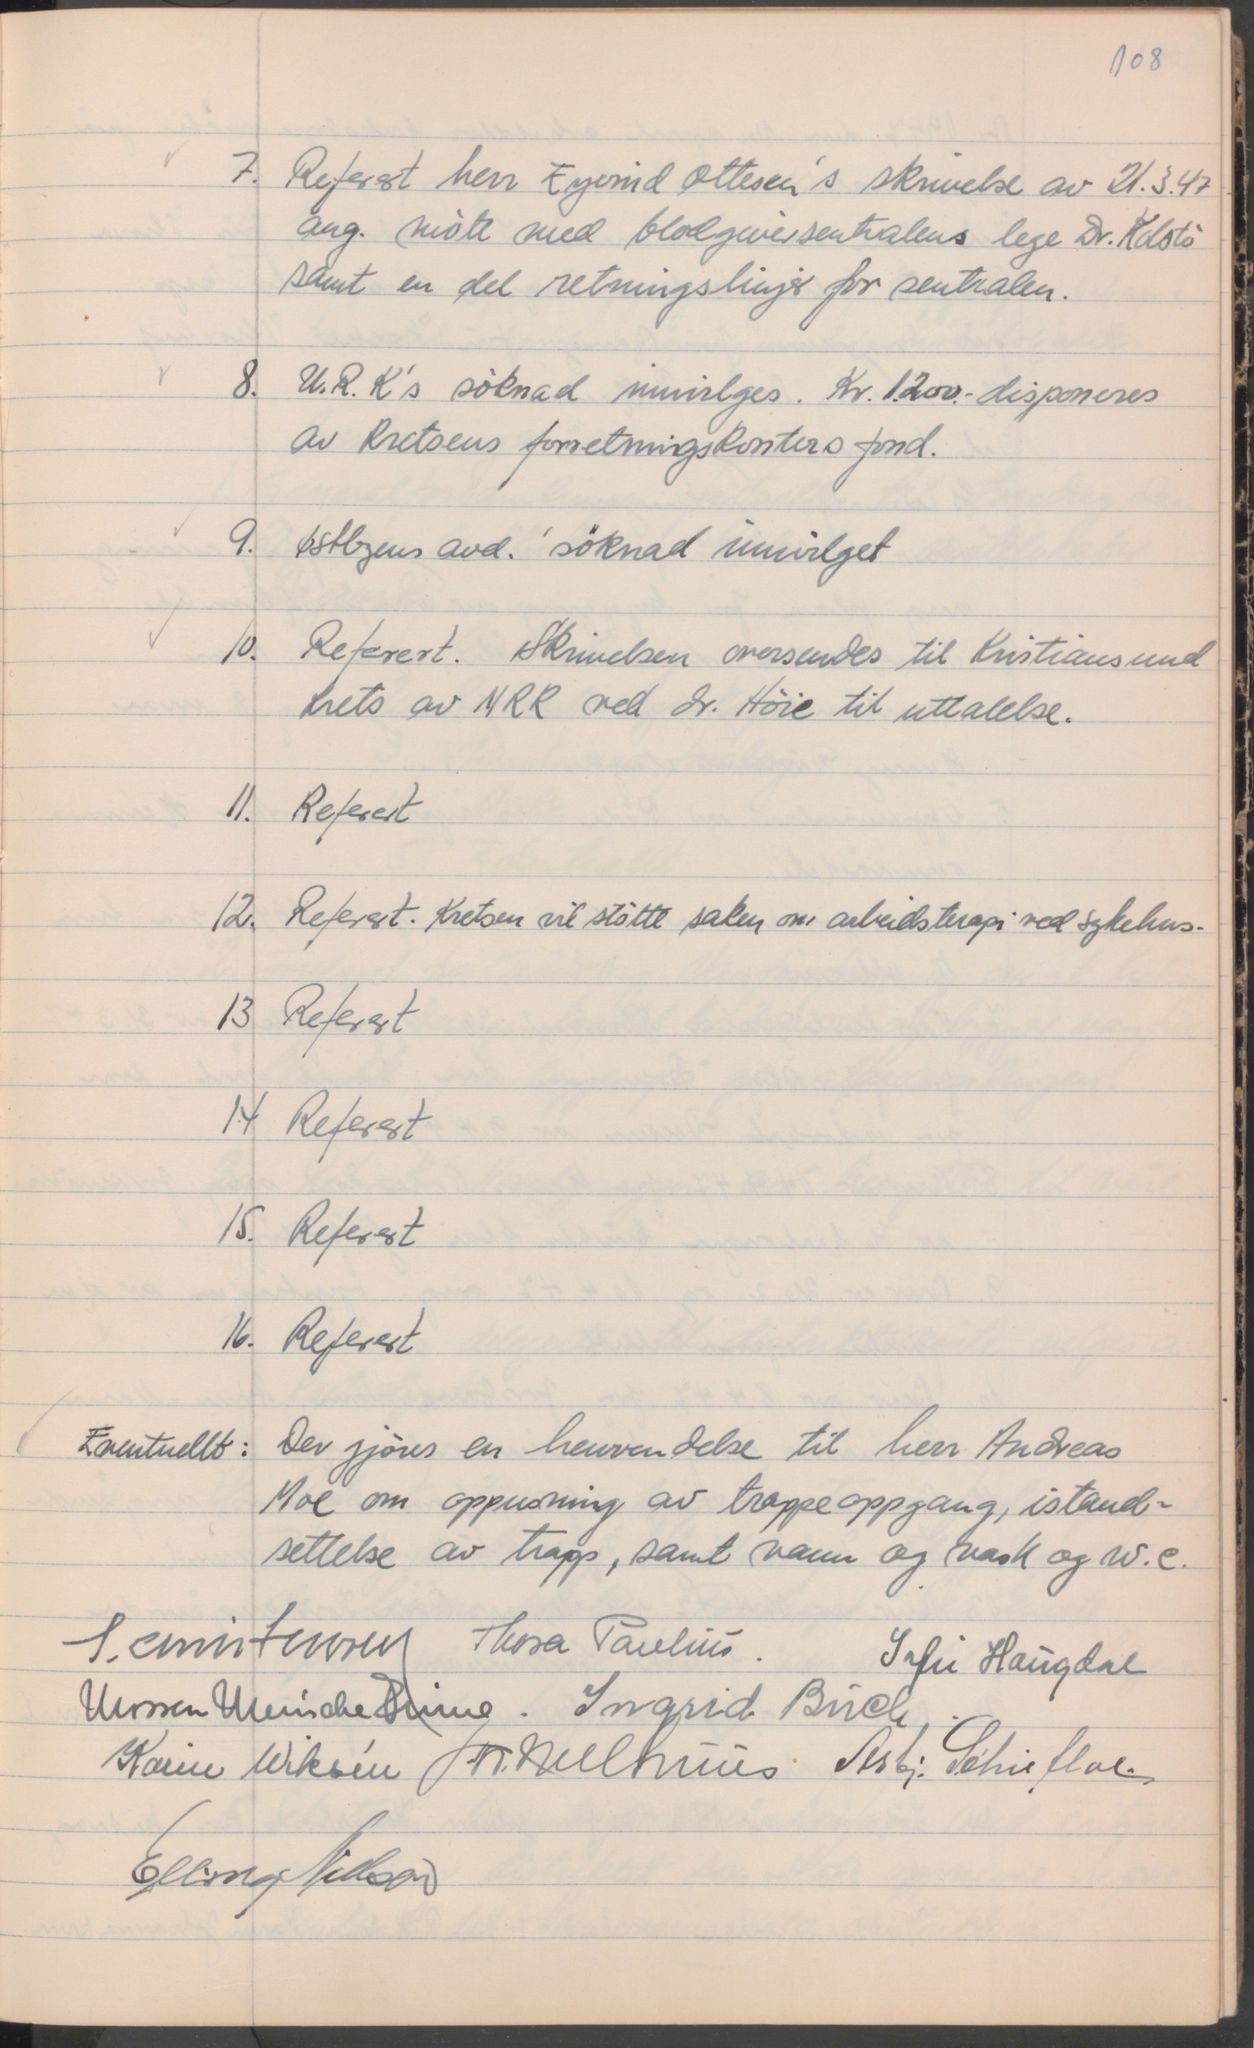 108
7. Referert herr Eyvind Ottesen's skrivelse av 21.3.47
ang. möte med blodgiversentralens lege Dr. Kolstö
samt en del retningslinjer for sentralen.
8. U.R.K's söknad innvilges. Kr. 1200.- disponeres
av Kretsens forretningskontors fond.
9. Østbyens avd.' söknad innvilget
10. Referert. Skrivelsen oversendes til Kristiansund
krets av NRK ved dr. Höie til uttalelse.
11. Referert
12. Referert. Kretsen vil stötte saken om arbeidsterapi ved sykehus.
13 Referert
14 Referert
15. Referert
16. Referert
Eventuellt: Der gjöres en henvendelse til herr Andreas
Moe om oppussning av trappeoppgang, istand-
settelse av trapp, samt vann og vask og W.C.
Thora Paulius. Haugdal
Ingrid Buch
Karin Wiksén Asbj. Schiefloe.
Elling Nilsen